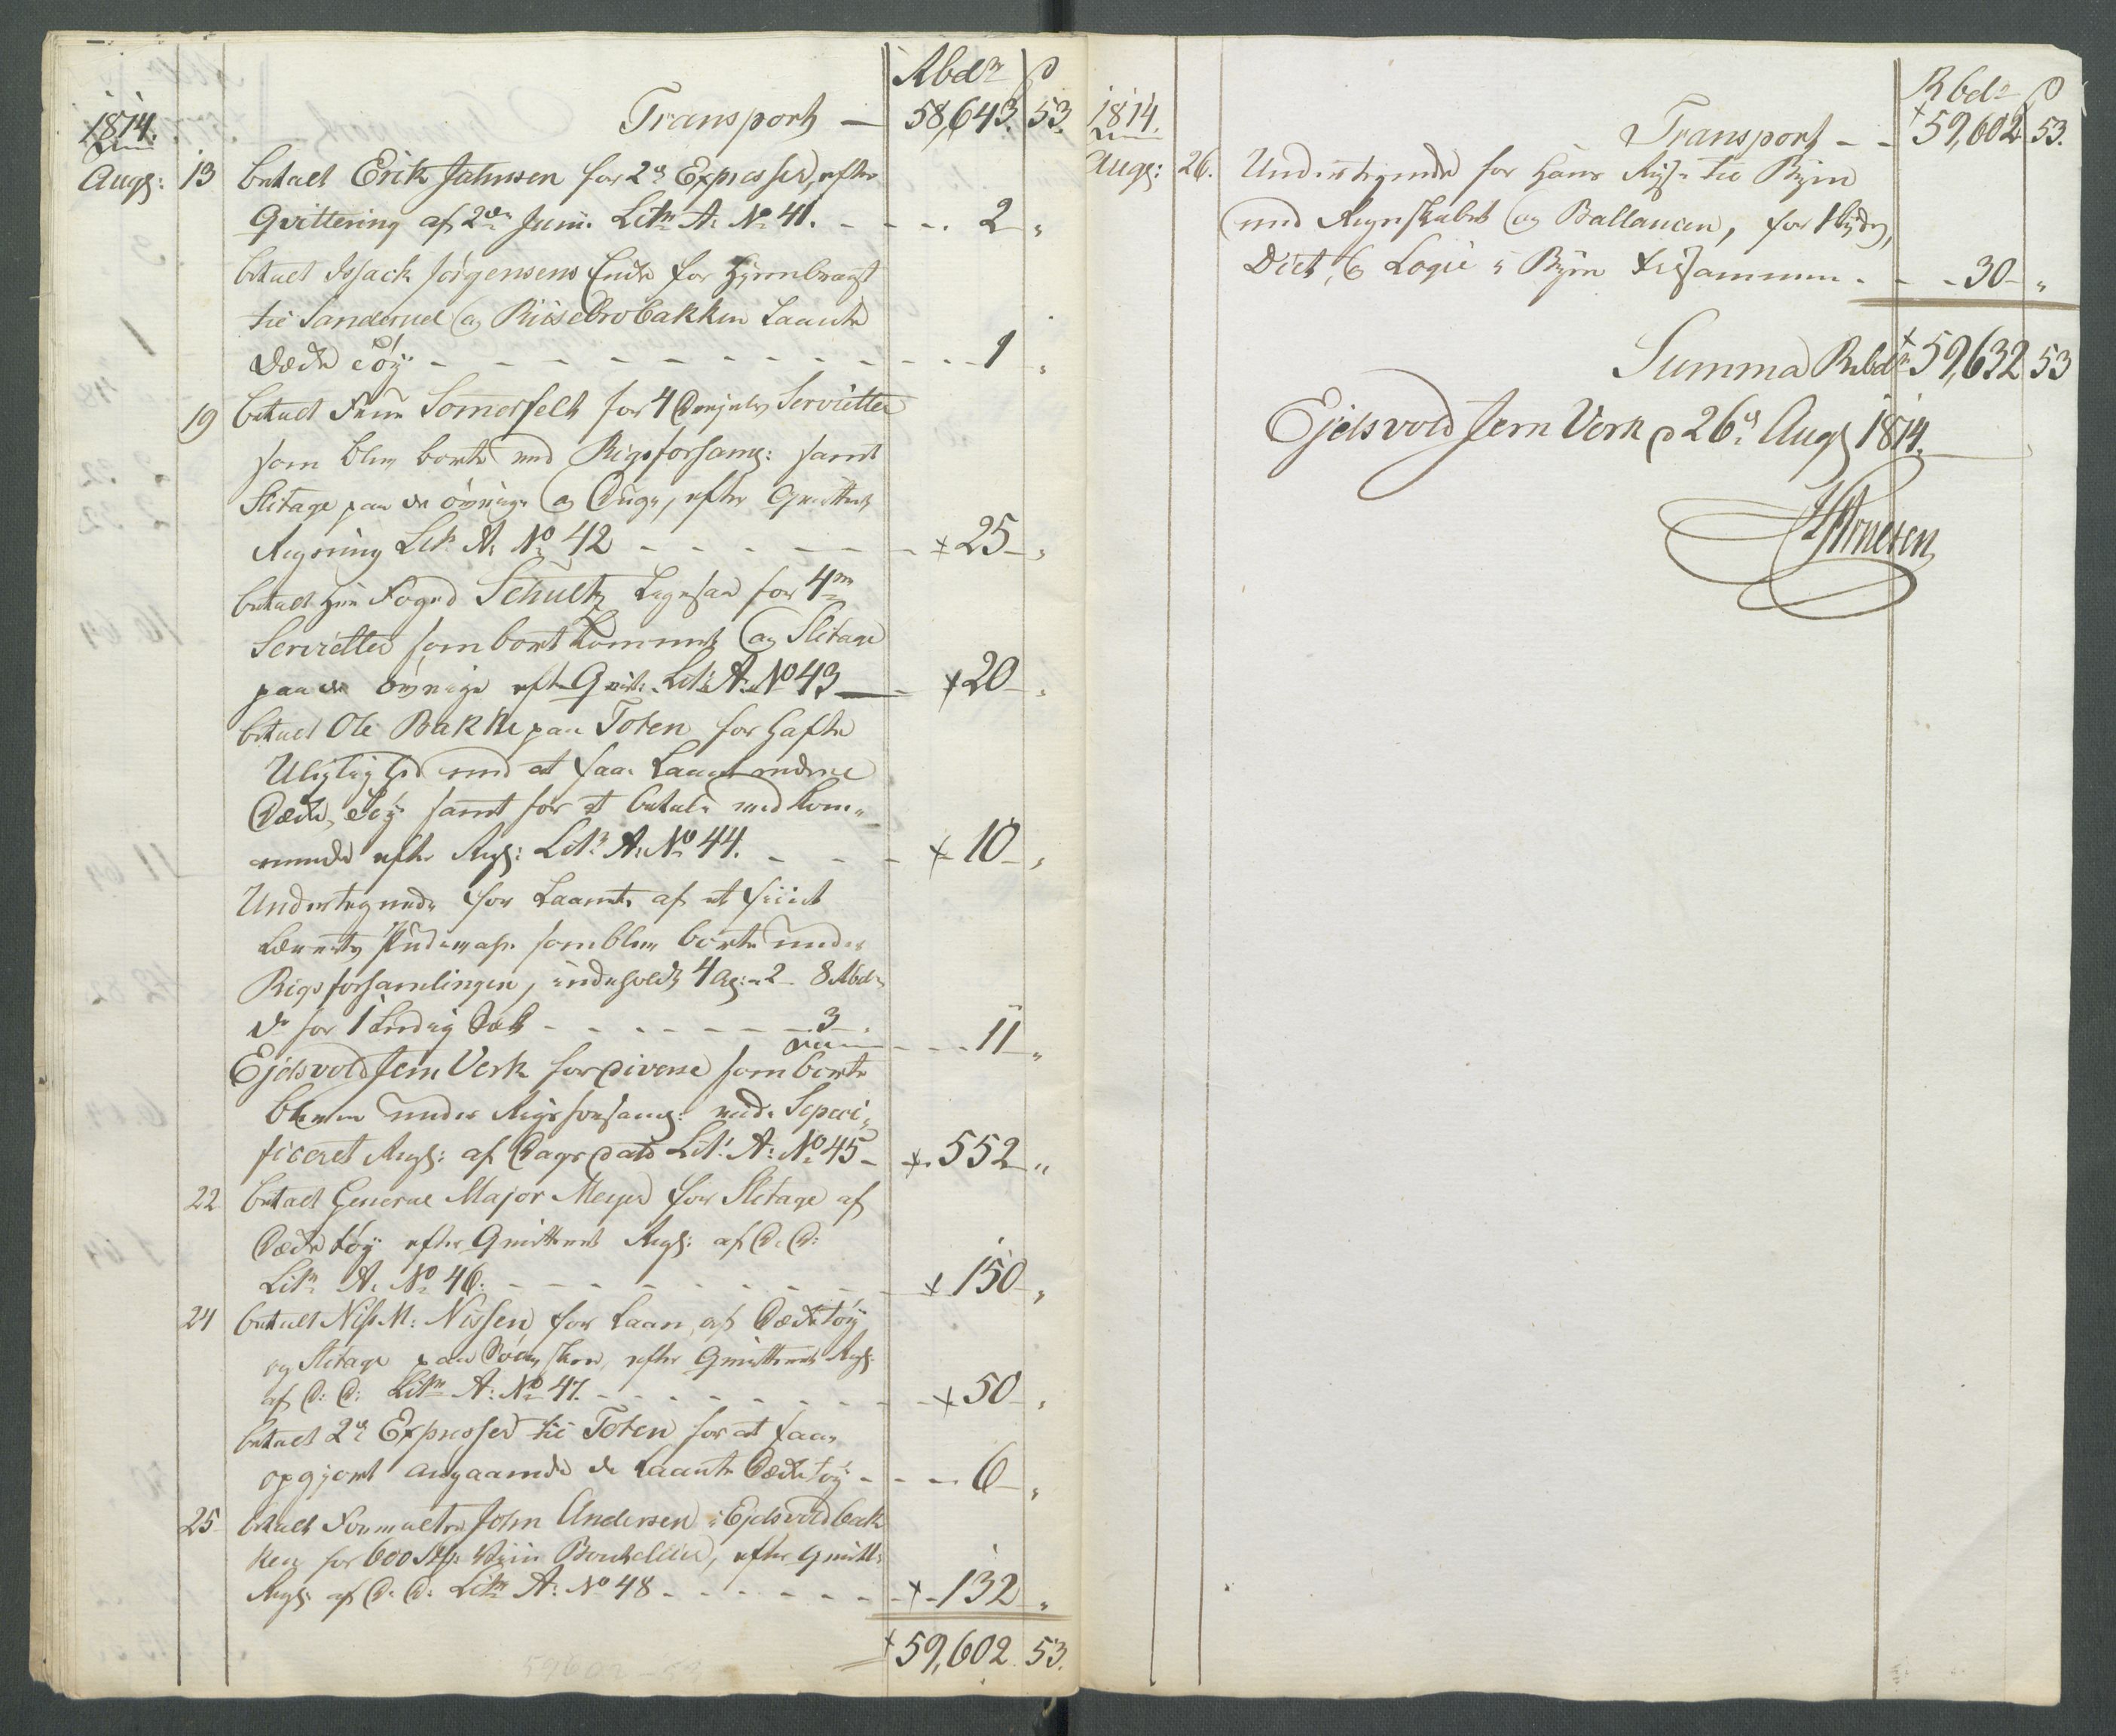 Rbdr ß
Transport — 58,643. 53.
1814.
Augs: 13 betalt Erik Jahnsen for 2de Expresser, efter
Qvittering af 2den Junii Litr A. No 41. - - - 2 "
betalt Issack Jörgensens Enke for hjembragt
til Sanderud og Riisebrobakken Laante
Dæke Töy - - - - - 1 "
19 betalt Frue Somerfelt for 4 Servietter
som blev borte ved Rigsforsamg: samt
Slitage paa de övrige og Duge, efter Qvitteret
Regning Litr A. No 42 - - - - 25 - "
betalt Hr Foged Schultz Ligesaa for 4re
Servietter som bortkommet og Slitage
paa de övrige eft Qvit: Litr A: No 43 — 20 - "
betalt Ole Bakke paa Toten for hafte
Uleylighed med at faa Laant endeel
Dække Töy samt for at betale ved kom-
mende efter Regs: Litr A: No 44. - - - 10 - "
Undertegnede for Laant af et fiint
Lærrets som blev borte under
Rigsforsamlingen, indeholdt 4 Al: a 2 - 8 Rbdr
do for 1 - - - - 3 - . - - - 11 - "
Ejdsvold Jern Verk for Diverse som borte
bleven under Rigsforsamg: vide Speci-
ficeret Regs: af Dags Dato Litr A: No 45 - 552 - "
22 betalt General Major Meyer for Slitage af
Dække töy efter Qvitteret Regs: af D. D:
Litr A. No 46. - - - - - 150 - "
24 betalt Niss M: Nissen for Laan af Dække töy
og Slitage paa efter Qvitteret Regs:
af D: D: Litr A: No 47. - - - - - 50 - "
betalt 2de Expresser til Toten for at faa
opgjort angaaende de Laante Dække töy - - - 6 - "
25 betalt Formalter John Andersen i Ejdsvoldbak-
ken for 600 Stk: Viin Bouteller, efter Qvitt:
Regs: af D. D: Litr A: No 48 - - - - - 132 - "
59,602. 53.
59602 - 53
Rbdr ß
1814. Transport - - 59,602 53.
Augs: 26. Undertegnede for Hans Reyse til Byen
med Regnskabet og Ballancen, for Skyds,
Diet, & Logie i Byen tilsammen - - - 30 - "
Summa Rbdr 59,632 53
Ejdsvold Jern Verk d 26de Augs 1814.